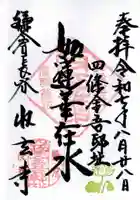 奉拝 令和七年八月廿八日
四條金吾邸址
如蓮華在水
鎌倉長谷
収玄寺